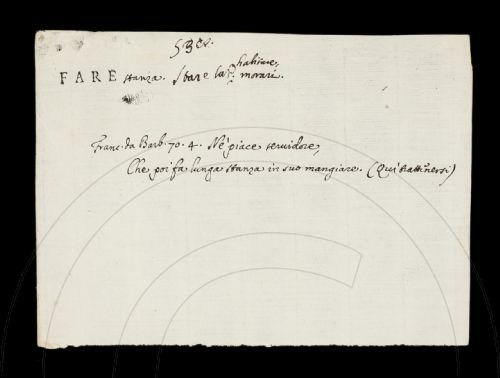 FARE stanza. Stare lat. habitare,
morari.
Franc. da Barb. 70. 4. Nè piace servidore,
Che poi fa lunga stanza in suo mangiare. (Qui trattenersi)